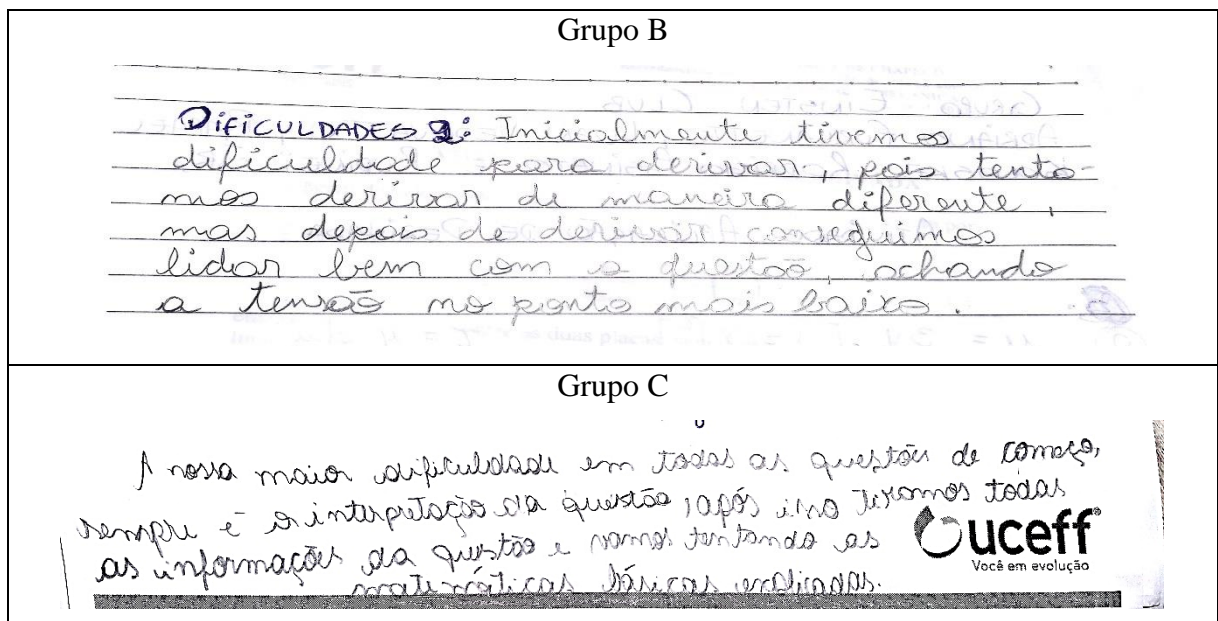 Grupo B
DIFICULDADES 2: Inicialmente tivemos
dificuldade para derivar, pois tenta-
mos derivar de maneira diferente,
mas depois de derivar conseguimos
lidar bem com a questão, achando
a tensão no ponto mais baixo.
Grupo C
A nossa maior dificuldade em todas as questões de começo,
sempre é a interpretação da questão, após isso tiramos todas
as informações da questão e vamos tentando as
matemáticas básicas explicadas.
uceff
Você em evolução